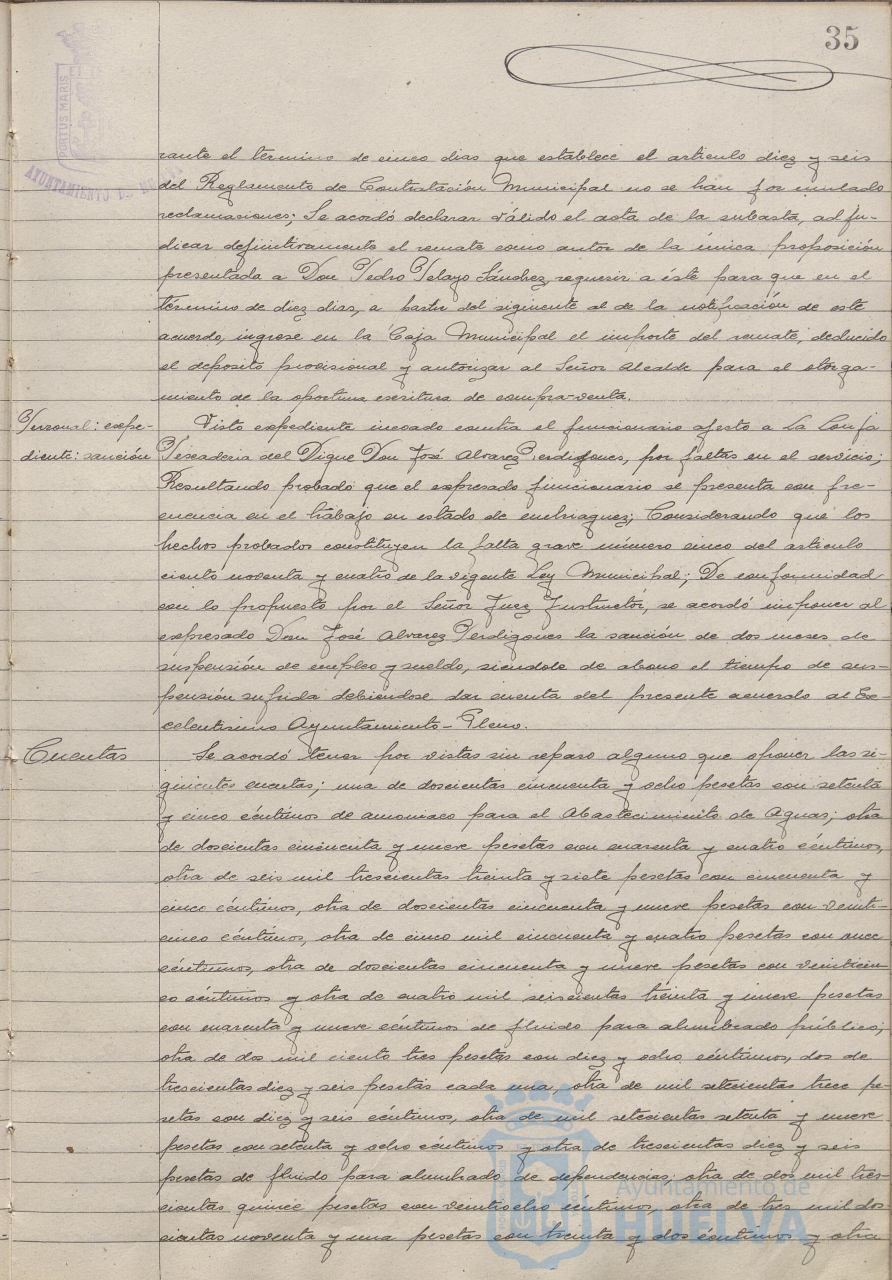 35
PORTUS MARIS
AYUNTAMIENTO DE HUELVA
rante el término de cinco dias que establece el articulo diez y seis
del Reglamento de Contratación Municipal no se han formulado
reclamaciones; Se acordó declarar válido el acta de la subasta, adju-
dicar definitivamente el remate como autor de la única proposición
presentada a Don Pedro Pelayo Sánchez, requerir a éste para que en el
término de diez dias, a partir del siguiente al de la notificación de este
acuerdo, ingrese en la Caja Municipal el importe del remate, deducido
el deposito provisional y autorizar al Señor Alcalde para el otorga-
miento de la oportuna escritura de compra-venta.
Personal: expe-
diente: sanción
Visto expediente incoado contra el funcionario afecto a La Lonja
Pescaderia del Dique Don José Alvarez Perdigones, por faltas en el servicio;
Resultando probado que el expresado funcionario se presenta con fre-
cuencia en el trabajo en estado de embriaguez; Considerando que los
hechos probados constituyen la falta grave número cinco del articulo
ciento noventa y cuatro de la vigente Ley Municipal; De conformidad
con lo propuesto por el Señor Juez Instructor, se acordó imponer al
expresado Don José Alvarez Perdigones la sanción de dos meses de
suspensión de empleo y sueldo, siendole de abono el tiempo de sus-
pensión sufrida debiendose dar cuenta del presente acuerdo al Ex-
celentisimo Ayuntamiento-Pleno.
Cuentas
Se acordó tener por vistas sin reparo alguno que oponer las si-
guientes cuentas; una de doscientas cincuenta y ocho pesetas con setenta
y cinco céntimos de amoniaco para el Abastecimiento de Aguas; otra
de doscientas cincuenta y nueve pesetas con cuarenta y cuatro céntimos,
otra de seis mil trescientas treinta y siete pesetas con cincuenta y
cinco céntimos, otra de doscientas cincuenta y nueve pesetas con veinti-
cinco céntimos, otra de cinco mil cincuenta y cuatro pesetas con once
céntimos, otra de doscientas cincuenta y nueve pesetas con veinticin
co céntimos y otra de cuatro mil seiscientas treinta y nueve pesetas
con cuarenta y nueve céntimos de fluido para alumbrado público;
otra de dos mil ciento tres pesetas con diez y ocho céntimos, dos de
trescientas diez y seis pesetas cada una, otra de mil setecientas trece pe-
setas con diez y seis céntimos, otra de mil setecientas setenta y nueve
pesetas con setenta y ocho céntimos y otra de trescientas diez y seis
pesetas de fluido para alumbrado de dependencias; otra de dos mil tres-
cientas quince pesetas con veintiocho céntimos, otra de tres mil dos
cientas noventa y una pesetas con treinta y dos centimos y otra
Ayuntamiento de
HUELVA